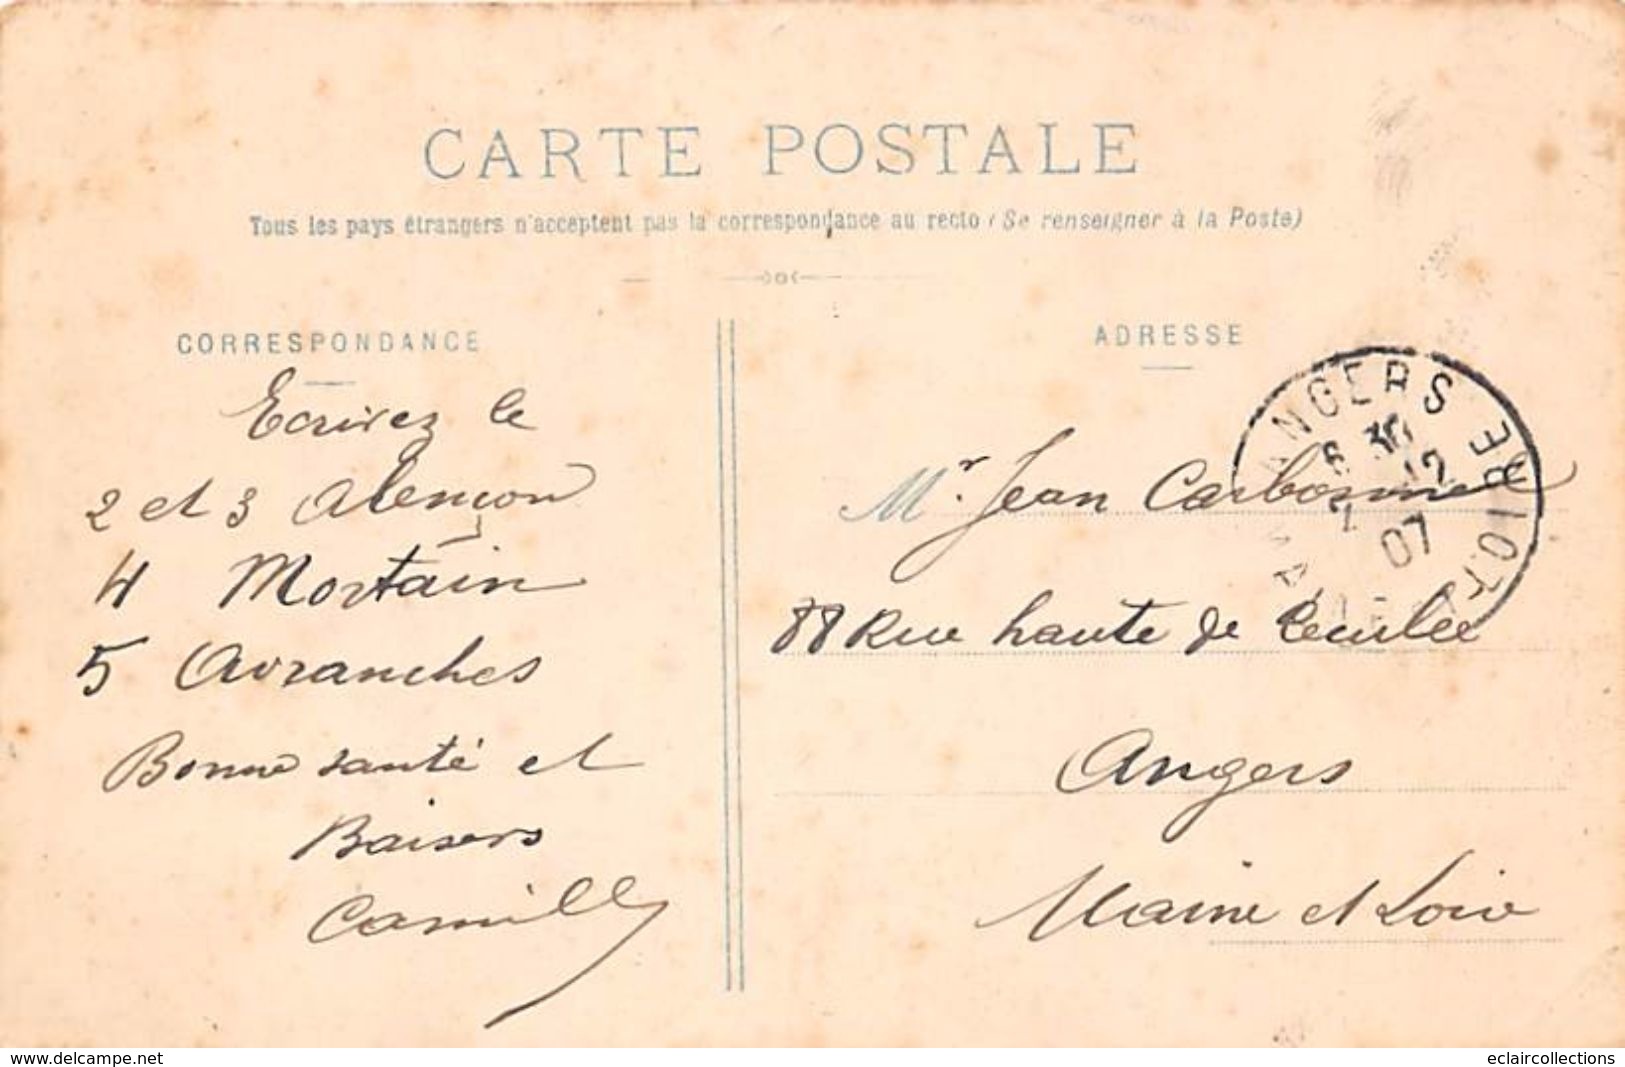 CARTE POSTALE
Tous les pays étrangers n'acceptent pas la correspondance au recto (Se renseigner à la Poste)
CORRESPONDANCE
Ecrivez le
2 et 3 Alençon
4 Mortain
5 Avranches
Bonne santé et
Baisers
Camille
ADRESSE
Mr. Jean Carbonnel
88 Rue haute de Reculée
Angers
Maine et Loire
ANGERS
6 30
2 12
07
www.delcampe.net
eclaircollections